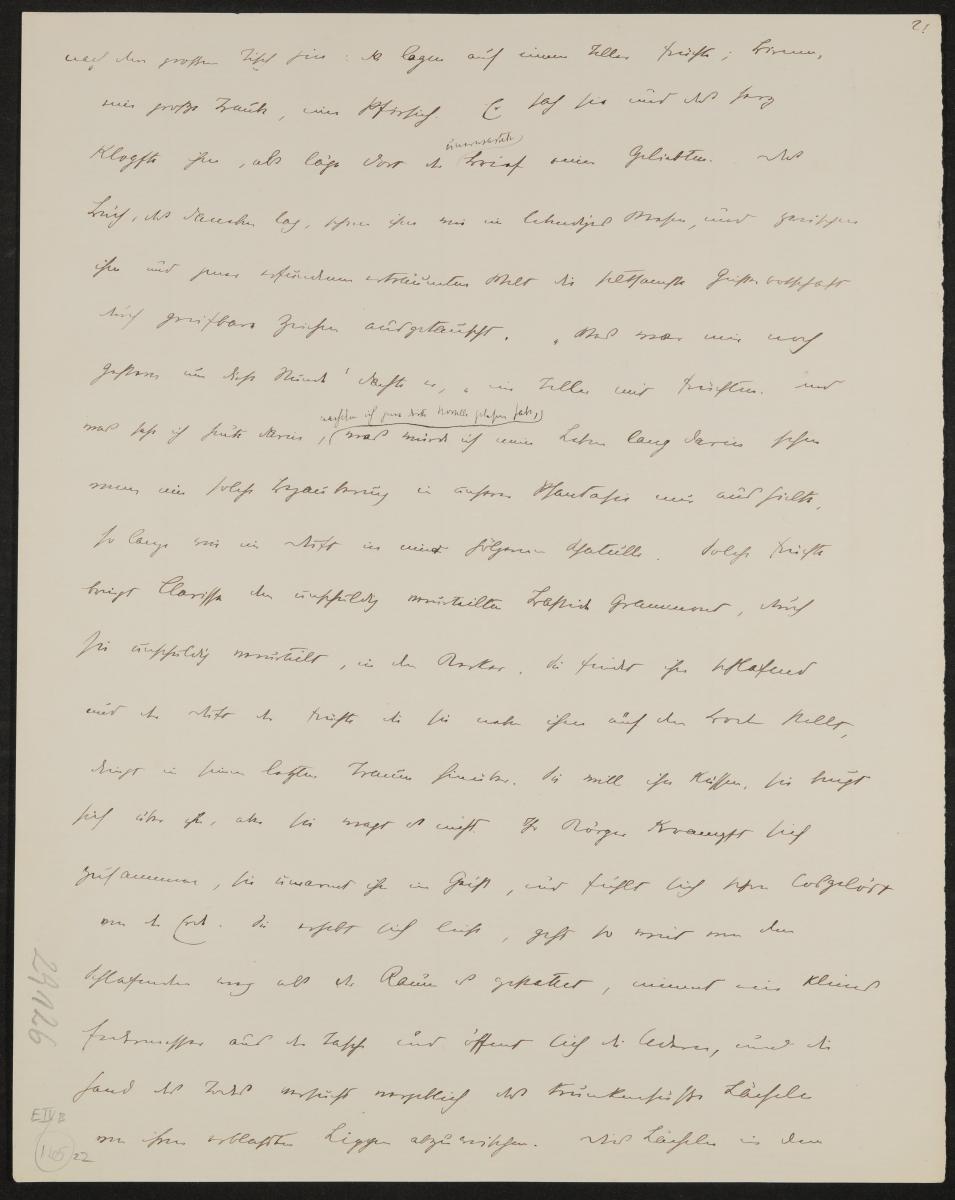 21
nach dem grossen Tisch hin: da lagen auf einem Teller Früchte; Birnen,
eine große Traube, eine Pfirsich. Er sah sie und das Herz
unerwartete
klopfte ihm, als läge dort der Brief einer Geliebten. Das
Buch, das daneben lag, schien ihm wie ein lebendiges Wesen, und zwischen
ihm und jener erfundenen erträumten Welt die seltsamste Geisterbotschaft
durch greifbare Zeichen ausgetauscht. „Was war mir noch
gestern um diese Stunde" dachte er, „ein Teller mit Früchten. Und
nachdem ich jene Novelle gelesen habe,
was sehe ich heute darin, was würde ich mein Leben lang darin sehen
wenn eine solche Bezauberung in unserer Phantasie nur aushielte,
so lange wie ein Duft in einer hölzernen Schatulle. Solche Früchte
bringt Clarissa dem unschuldig verurteilten Grammont, durch
sie unschuldig verurteilt, in den Kerker. Sie findet ihn schlafend
und der Duft der Früchte die sie neben ihm auf den Boden stellt,
dringt in seinen letzten Traum hinüber. Sie will ihn küssen, sie beugt
sich über ihn, aber sie wagt es nicht. Ihr Körper krampft sich
zusammen, sie umarmt ihn im Geist, und fühlt sich schon losgelöst
von der Erde. Sie erhebt sich leise, geht so weit von dem
Schlafenden weg als der Raum es gestattet, nimmt ein kleines
Federmesser aus der Tasche und öffnet sich die Adern, und die
Hand des Todes versucht vergeblich das trunkensüsse Lächeln
von ihren erblassten Lippen abzuwischen. Das Lächeln in dem
29126
E IV B
165
22